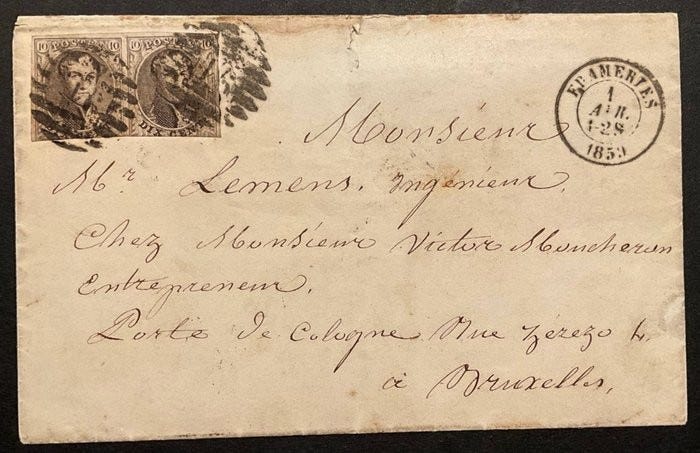 10 POSTES 10 10 POSTES 10
DIX CENT
FRAMERIES
1
AVR.
1859
Monsieur
Mr Lemens, Ingénieur,
Chez Monsieur Victor Moucheron
Entrepreneur.
Porte de Cologne Rue Zérézo 4.
à Bruxelles,